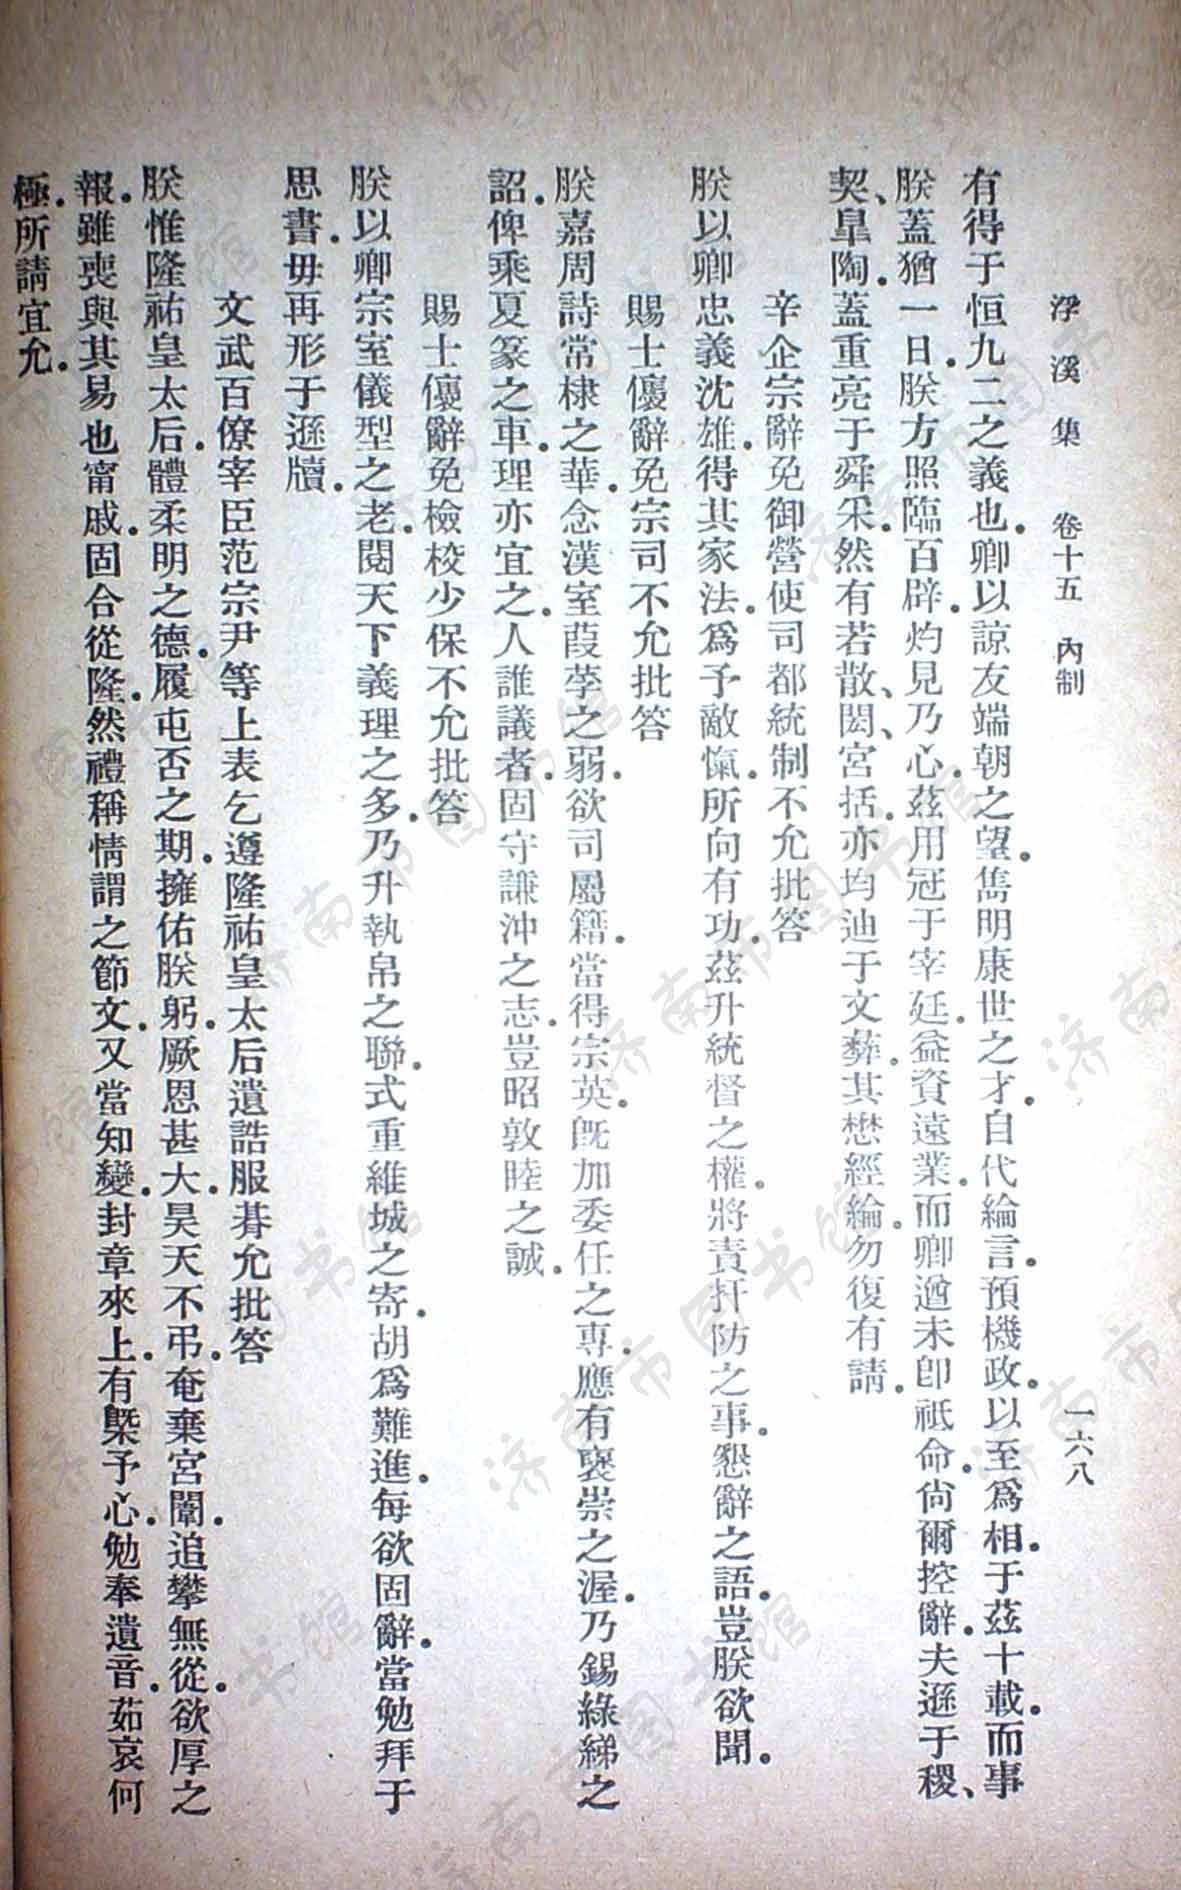 浮溪集 卷十五 內制 一六八
有得于恒九二之義也。卿以諒友端朝之望。雋明康世之才。自代綸言。預機政。以至爲相。于茲十載。而事
朕蓋猶一日。朕方照臨百辟。灼見乃心。茲用冠于宰廷。益資遠業。而卿遒未卽祇命。尙爾控辭。夫遜于稷、
契、臯陶。蓋重亮于舜采。然有若散、閎、宮括。亦均迪于文彝。其懋經綸。勿復有請。
辛企宗辭免御營使司都統制不允批答
朕以卿忠義沈雄。得其家法。爲予敵愾。所向有功。茲升統督之權。將責扞防之事。懇辭之語。豈朕欲聞。
賜士㒟辭免宗司不允批答
朕嘉周詩常棣之華。念漢室葭莩之弱。欲司屬籍。當得宗英。旣加委任之專。應有襃崇之渥。乃錫綠綈之
詔。俾乘夏篆之車。理亦宜之。人誰議者。固守謙沖之志。豈昭敦睦之誠。
賜士㒟辭免檢校少保不允批答
朕以卿宗室儀型之老。閱天下義理之多。乃升執帛之聯。式重維城之寄。胡爲難進。每欲固辭。當勉拜于
思書。毋再形于遜牘。
文武百僚宰臣范宗尹等上表乞遵隆祐皇太后遺誥服朞允批答
朕惟隆祐皇太后。體柔明之德。履屯否之期。擁佑朕躬。厥恩甚大。昊天不弔。奄棄宮闈。追攀無從。欲厚之
報。雖喪與其易也甯戚。固合從隆。然禮稱情謂之節文。又當知變。封章來上。有槩予心。勉奉遺音。茹哀何
極。所請宜允。